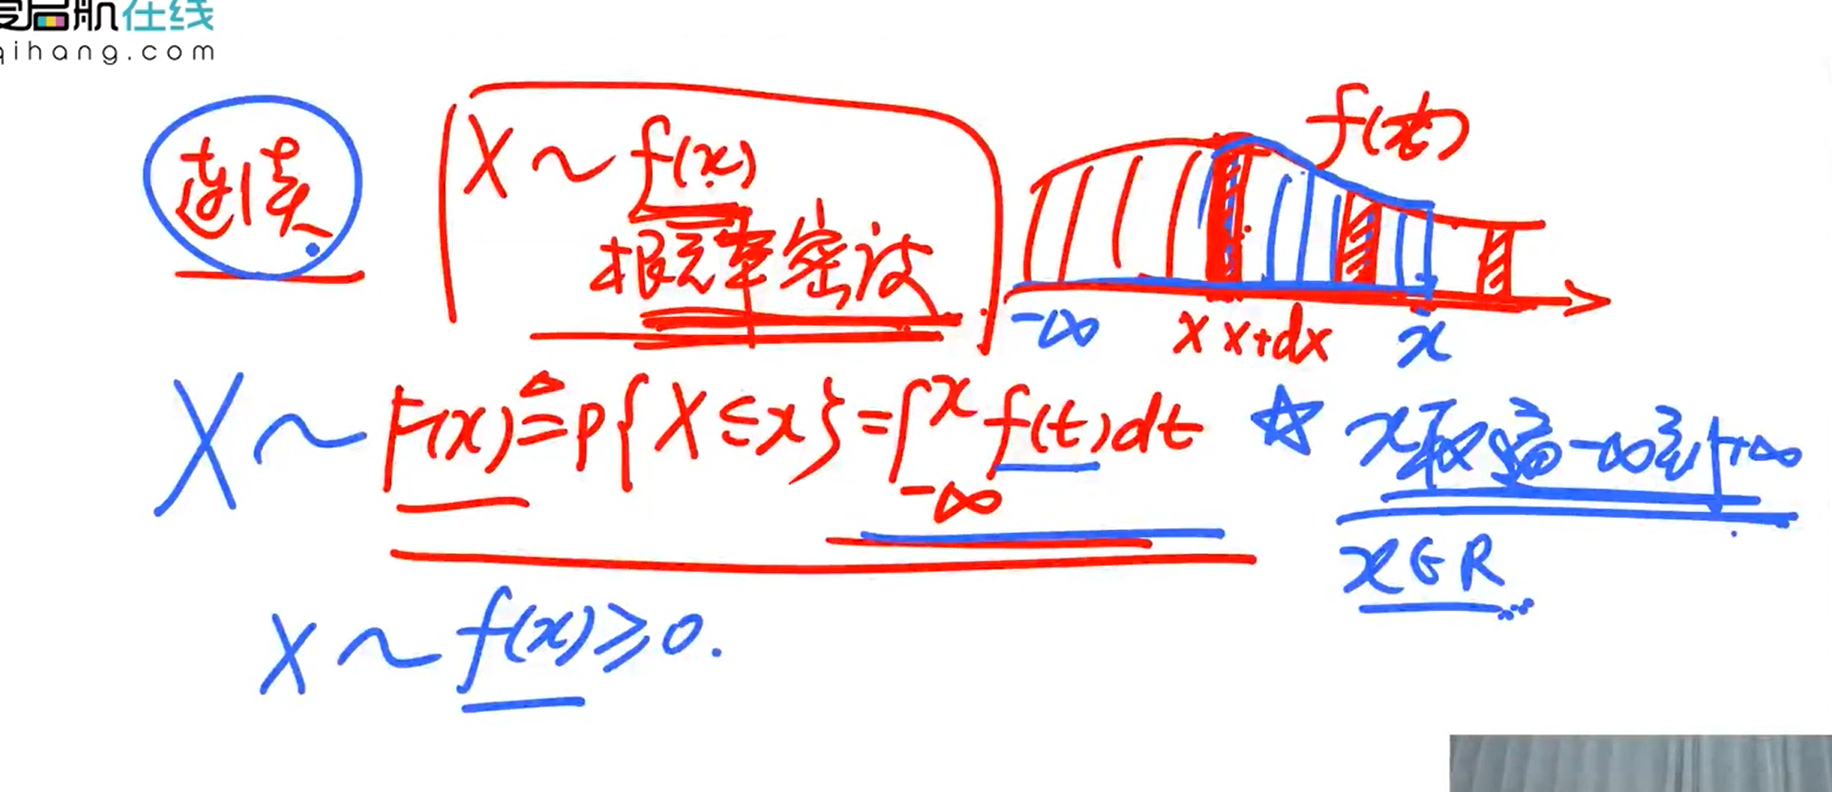 启航在线
qihang.com
连续
X ~ f(x)
概率密度
f(t)
-∞ x x+dx x
X ~ F(x) ≜ P{X ≤ x} = ∫_{-∞}^{x} f(t)dt ☆ x取遍-∞到+∞
x∈R
X ~ f(x) ≥ 0.